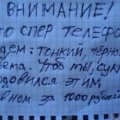 ВНИМАНИЕ!
то спёр телефо
дем: тонкий, чёрно
вета. Чтоб ты, сука
одовился этим
вном за 1000 рублей